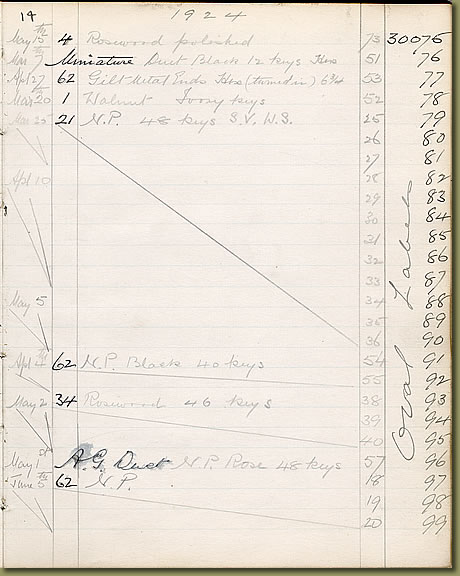 14 1924
May 15th 4 Rosewood polished 73 30075
Mar 7 Miniature Duet Black 12 keys Hex 51 76
Apl 27 62 Gilt Metal Ends Hex (tuned in) 6¾ 53 77
Mar 20th 1 Walnut Ivory keys 52 78
Mar 25 21 N.P. 48 keys S.V. W.S. 25 79
26 80
27 81
Apl 10 28 82
29 83
30 84
31 85
32 86
33 87
May 5 34 88
35 89
36 90
Apl 4th 62 N.P. Black 40 keys 54 91
55 92
May 2 34 Rosewood 46 keys 38 93
39 94
40 95
May 1st A.G. Duet N.P. Rose 48 keys 57 96
June 5th 62 N.P. 18 97
19 98
20 99
Oval Labels